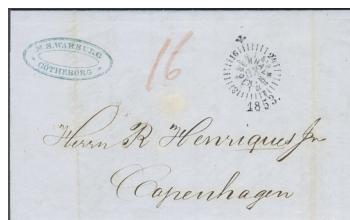 M.S.WARBURG
GÖTHEBORG
16
1853.
Herrn R Henriques Jr
Copenhagen